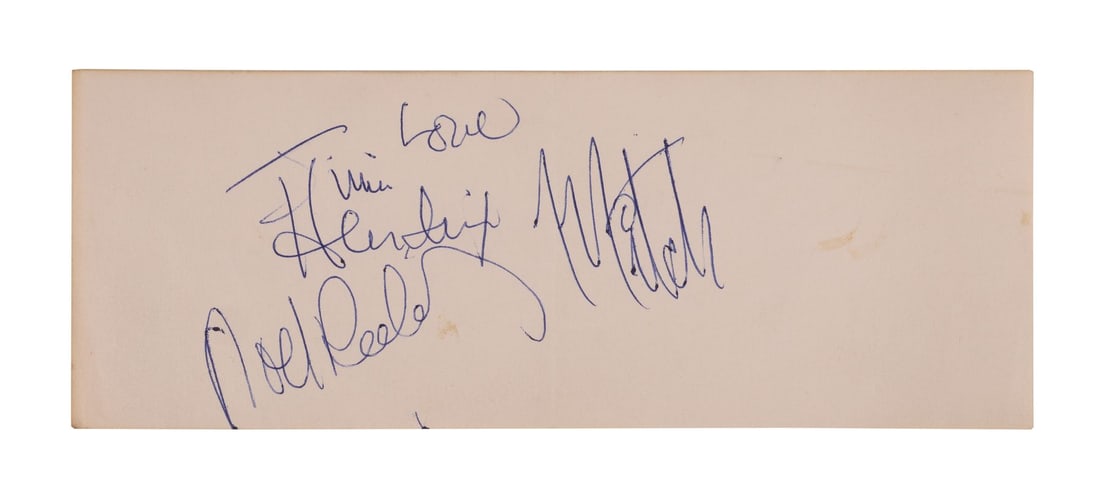 Love
Jimi
Hendrix
Mitch
Noel Redding